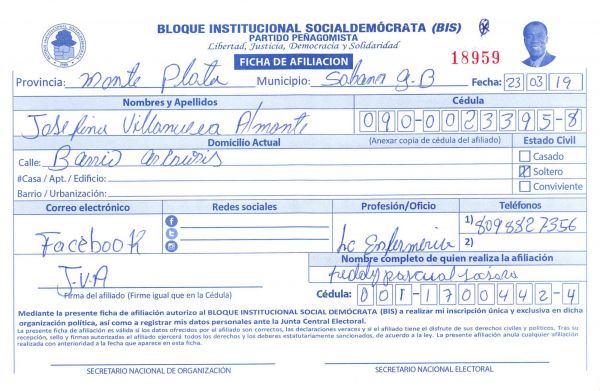 BLOQUE INSTITUCIONAL SOCIALDEMÓCRATA (BIS)
PARTIDO PEÑAGOMISTA
Libertad, Justicia, Democracia y Solidaridad
FICHA DE AFILIACION
18959
Provincia: Monte Plata Municipio: Sabana g.B Fecha: 23 03 19
Nombres y Apellidos Cédula
Josefina Villanueva Almonte 090-0023395-8
Domicilio Actual (Anexar copia de cédula del afiliado) Estado Civil
Calle: Barrio
Casado
#Casa / Apt. / Edificio: Soltero
Barrio / Urbanización: Conviviente
Correo electrónico Redes sociales Profesión/Oficio Teléfonos
1) 8098827356
Facebook Lic Enfermeria 2)
Nombre completo de quien realiza la afiliación
J.V.A freddy pascual
Firma del afiliado (Firme igual que en la Cédula) Cédula: 001-1700442-4
Mediante la presente ficha de afiliación autorizo al BLOQUE INSTITUCIONAL SOCIAL DEMÓCRATA (BIS) a realizar mi inscripción única y exclusiva en dicha
organización política, así como a registrar mis datos personales ante la Junta Central Electoral.
La presente ficha de afiliación es válida si los datos ofrecidos por el afiliado son correctos, las declaraciones veraces y si el afiliado tiene el disfrute de sus derechos civiles y políticos. Tras su
recepción, sello y firmas autorizadas el afiliado ejercerá todos los derechos y los deberes estatutariamente sancionados, de acuerdo a la ley. La presente afiliación anula cualquier afiliación
realizada con anterioridad a la fecha que aparece en esta ficha.
SECRETARIO NACIONAL DE ORGANIZACIÓN SECRETARIO NACIONAL ELECTORAL